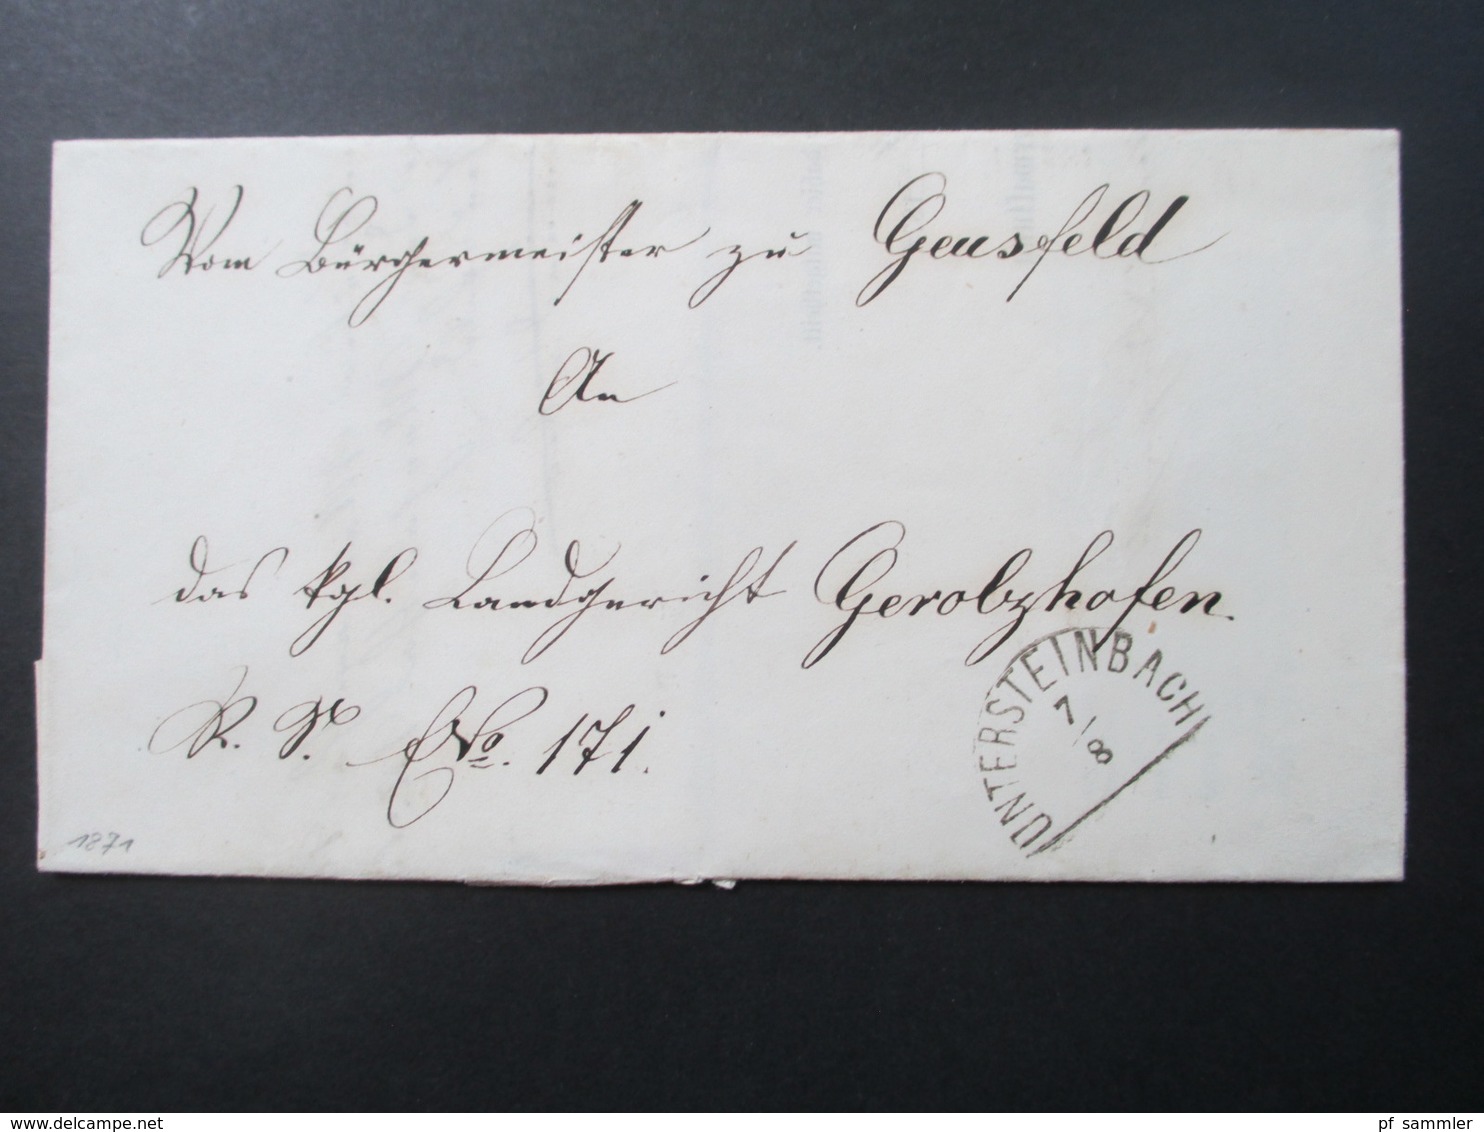 Vom Bürgermeister zu Geusfeld
An
das kgl. Landgericht Gerolzhofen.
R. S. No. 171.
UNTERSTEINBACH
7/8
1871
© www.delcampe.net
pf_sammler